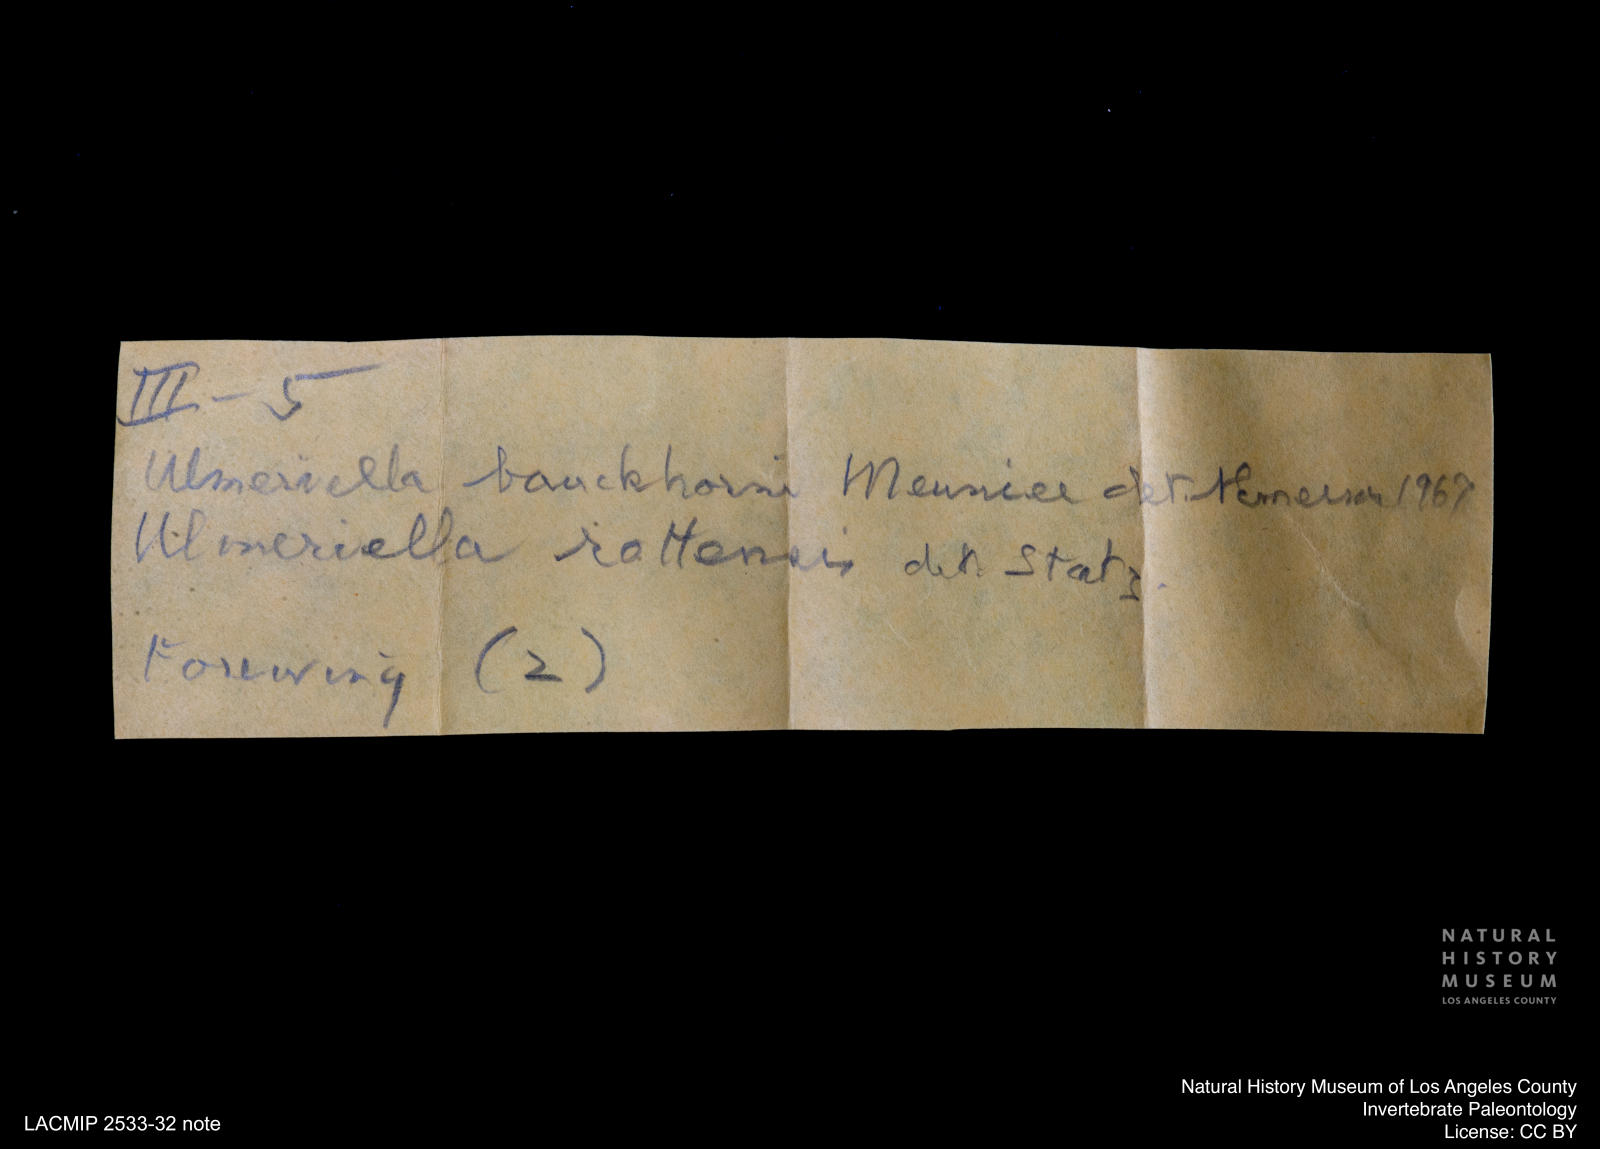 III - 5
Ulmeriella bauckhorni Meunier det. Hemerson 1967
Ulmeriella rottensis det. Statz.
Forewing (2)
NATURAL
HISTORY
MUSEUM
LOS ANGELES COUNTY
Natural History Museum of Los Angeles County
Invertebrate Paleontology
License: CC BY
LACMIP 2533-32 note